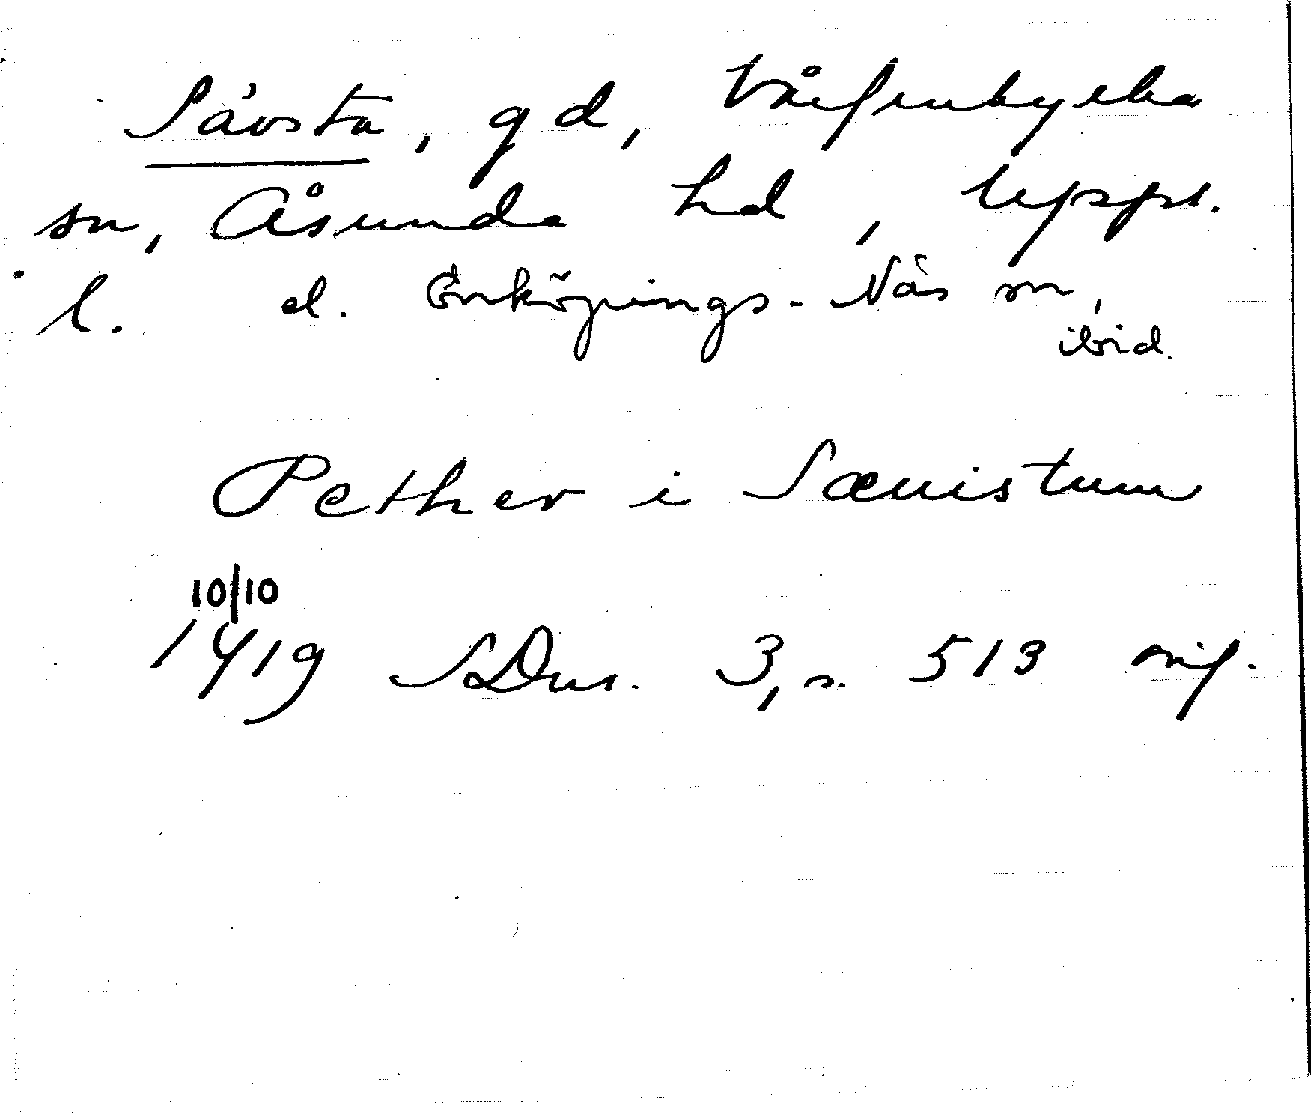 Sävsta, gd, Vårfrukyrka
sn, Åsunda hd, Uppsl.
l. el. Enköpings-Näs sn,
ibid.
Pether i Sæuistum
10/10
1419 SDns. 3, s. 513 orig.